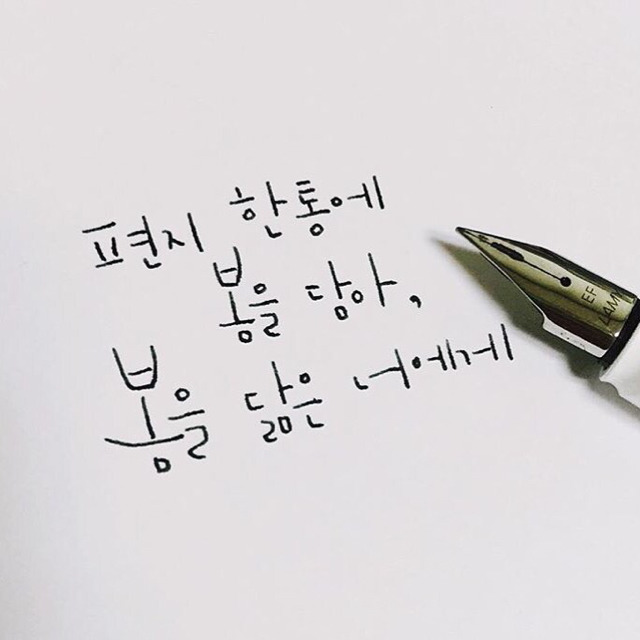 편지 한통에
봄을 담아,
봄을 닮은 너에게
EF
LAMY